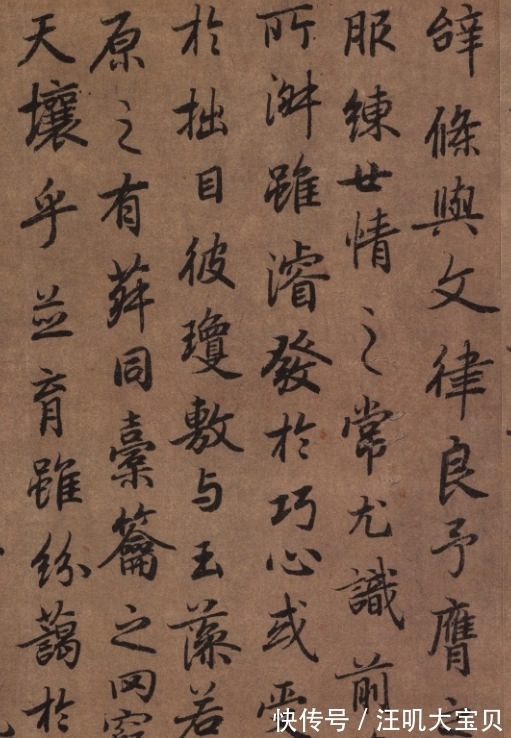 辭條與文律良予膺之
服練世情之常尤識前
所淑雖濬發於巧心或受
於拙目彼瓊敷与玉藻若
原之有菽同橐籥之罔窮
天壤乎並育雖紛藹於
快传号/汪叽大宝贝